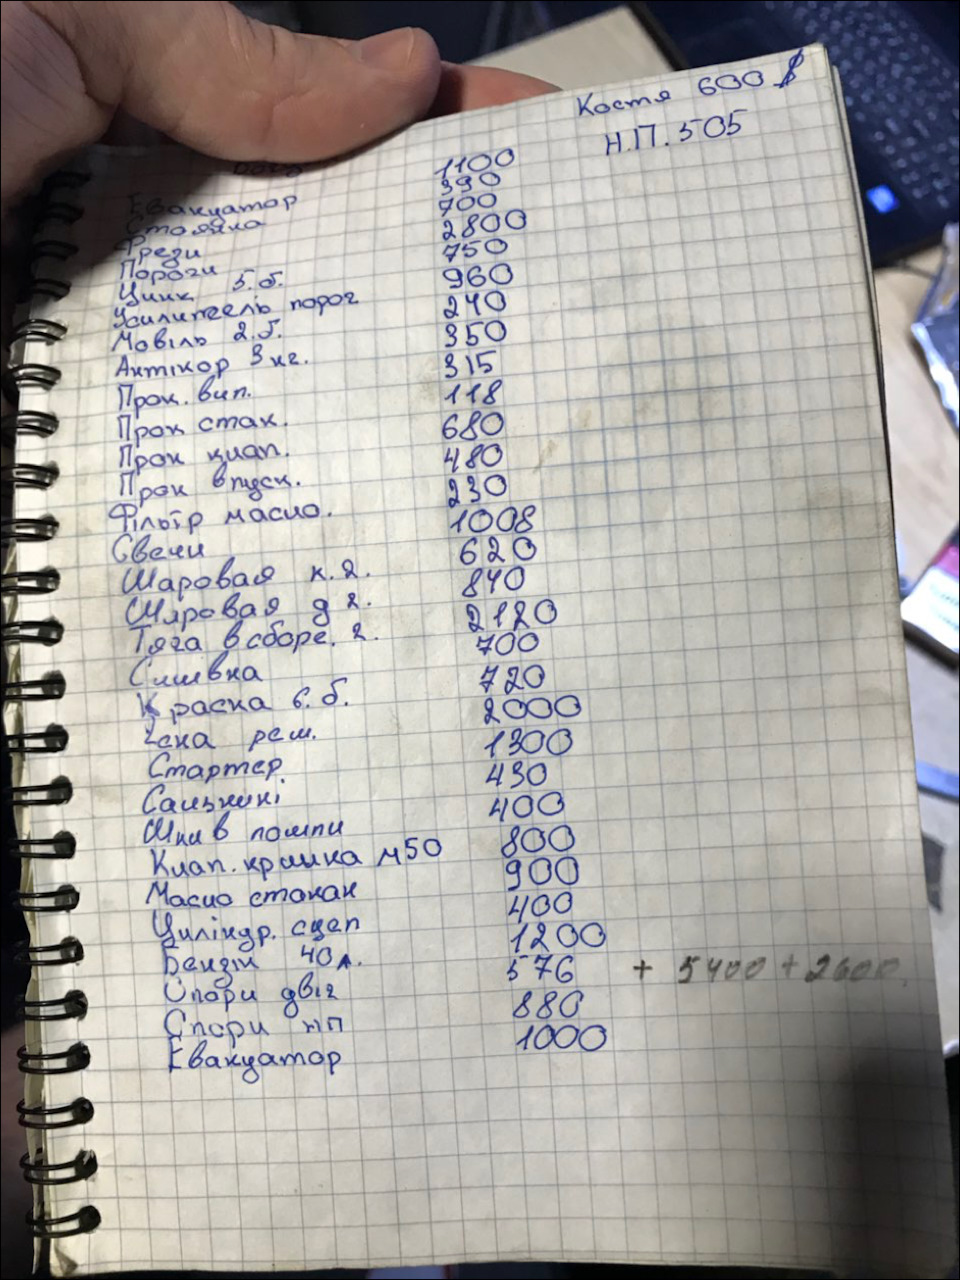 Костя 600 $
Н.П. 505
Евакуатор 1100
Стоянка 390
Фрези 700
Пороги 2800
Цинк 5.б. 750
Усилитель порог 960
Мовіль 2.б. 240
Антікор 3 кг. 350
Прок. вип. 315
Прок стак. 118
Прок клап. 680
Прок впуск. 480
Фільтр масло. 230
Свечи 1008
Шаровая к.2. 620
Шаровая д 2. 840
Тяга в сборе. 2. 2120
700
Краска 6.б. 720
рем. 2000
Стартер 1300
430
Шкив помпи 400
Клап. кришка м50 800
Масло стакан 900
Циліндр. сцеп 400
Бензін 40л. 1200
Опори двіг 576 + 5400 + 2600
Опори кп 880
Евакуатор 1000